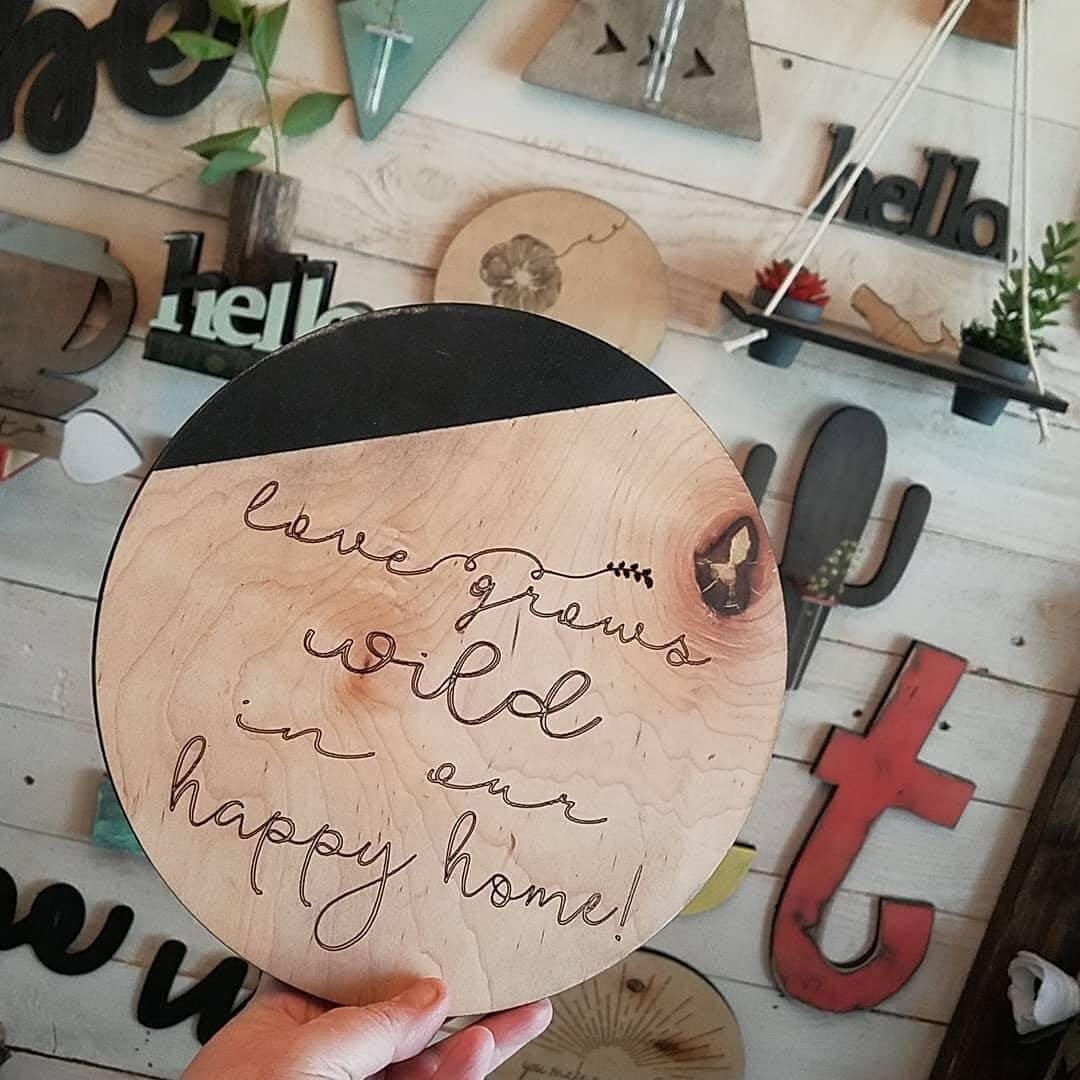 hello
hello
love
grows
wild
in our
happy home!
t
you make